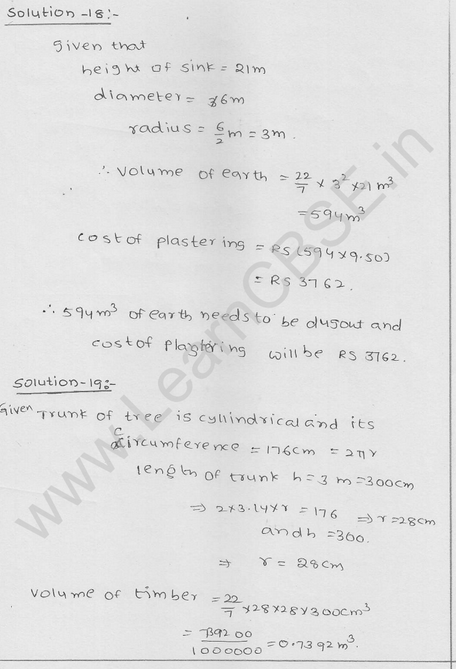 Solution -18:-
Given that
height of sink = 21m
diameter = 6m
radius = 6/2 m = 3m.
∴ Volume of earth = 22/7 × 3² × 21 m³
= 594m³
cost of plastering = RS (594×9.50)
= RS 3762.
∴ 594m³ of earth needs to be dugout and
cost of plastering will be RS 3762.
Solution-19:-
Given Trunk of tree is cyllindrical and its
circumference = 176cm = 2πr
length of trunk h = 3 m = 300cm
⇒ 2×3.14×r = 176 ⇒ r = 28cm
and h = 300.
⇒ r = 28cm
Volume of timber = 22/7 ×28×28×300cm³
= 739200/1000000 = 0.7392 m³.
www.LearnCBSE.in